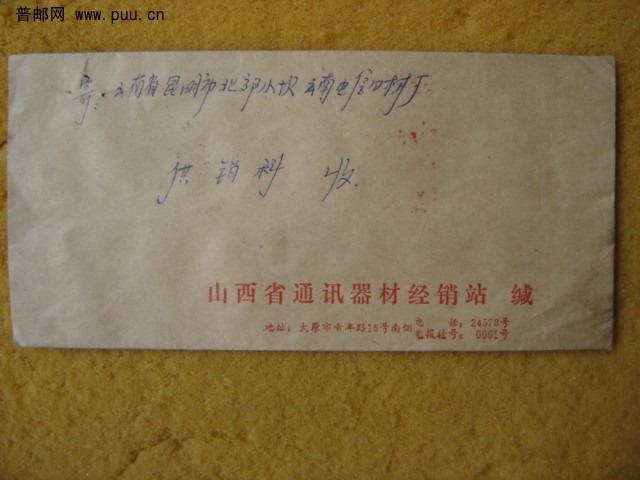 普邮网 www.puu.cn
寄:云南省昆明市北郊小坝 云南电信器材厂
供销科 收
山西省通讯器材经销站 缄
地址:太原市青年路15号南侧 电 话:24578号
电报挂号:0661号